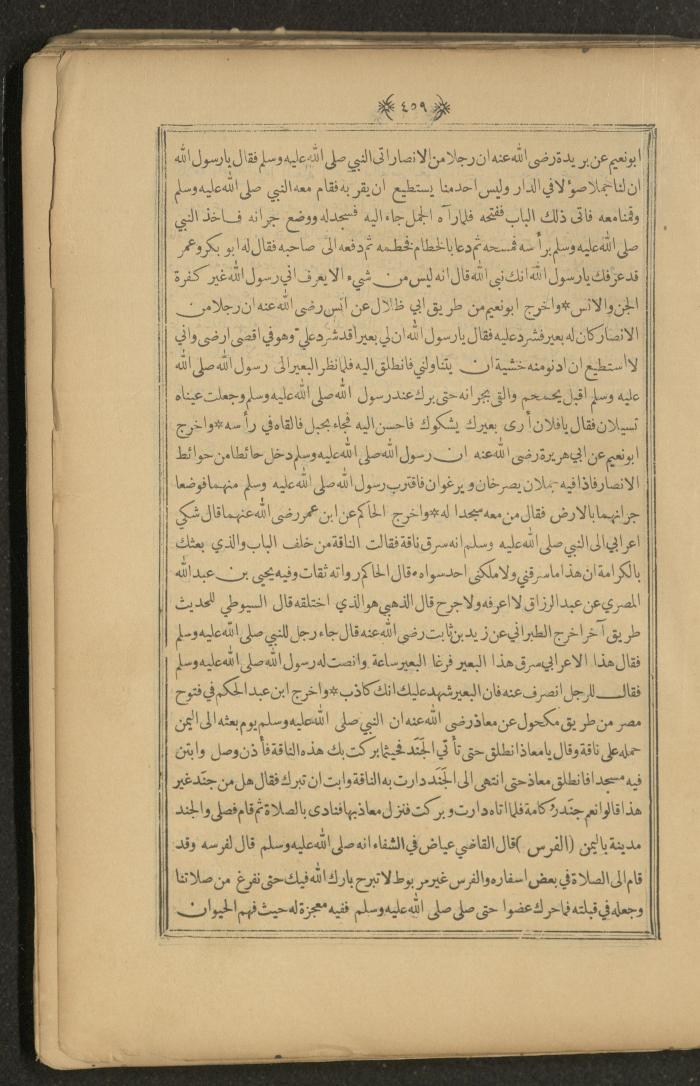 ٤٥٩
ابونعيم عن بريدة رضى الله عنه ان رجلا من الانصار اتى النبي صلى الله عليه وسلم فقال يا رسول الله
ان لنا جملا صؤلا في الدار وليس احد منا يستطيع ان يقربه فقام معه النبي صلى الله عليه وسلم
وقمنا معه فاتى ذلك الباب ففتحه فلما رآه الجمل جاء اليه فسجد له ووضع جرانه فاخذ النبي
صلى الله عليه وسلم برأسه فمسحه ثم دعا بالخطام فخطمه ثم دفعه الى صاحبه فقال له ابو بكر وعمر
قد عرفك يا رسول الله انك نبي الله قال انه ليس من شيء الا يعرف اني رسول الله غير كفرة
الجن والانس * واخرج ابونعيم من طريق ابي ظلال عن انس رضى الله عنه ان رجلا من
الانصار كان له بعير فشرد عليه فقال يا رسول الله ان لي بعيرا قد شرد علي وهو في اقصى ارضى واني
لا استطيع ان ادنو منه خشية ان يتناولني فانطلق اليه فلما نظر البعير الى رسول الله صلى الله
عليه وسلم اقبل يحمحم والقى بجرانه حتى برك عند رسول الله صلى الله عليه وسلم وجعلت عيناه
تسيلان فقال يا فلان أرى بعيرك يشكوك فاحسن اليه فجاء بحبل فالقاه في رأسه * واخرج
ابونعيم عن ابي هريرة رضى الله عنه ان رسول الله صلى الله عليه وسلم دخل حائطا من حوائط
الانصار فاذا فيه جملان يصرخان ويرغوان فاقترب رسول الله صلى الله عليه وسلم منهما فوضعا
جرانهما بالارض فقال من معه سجدا له * واخرج الحاكم عن ابن عمر رضى الله عنهما قال شكي
اعرابي الى النبي صلى الله عليه وسلم انه سرق ناقة فقالت الناقة من خلف الباب والذي بعثك
بالكرامة ان هذا ما سرقني ولا ملكنى احد سواه * قال الحاكم رواته ثقات وفيه يحيى بن عبد الله
المصري عن عبد الرزاق لا اعرفه ولا جرح قال الذهبي هو الذي اختلقه قال السيوطي للحديث
طريق آخر اخرج الطبراني عن زيد بن ثابت رضى الله عنه قال جاء رجل للنبي صلى الله عليه وسلم
فقال هذا الاعرابي سرق هذا البعير فرغا البعير ساعة وانصت له رسول الله صلى الله عليه وسلم
فقال للرجل انصرف عنه فان البعير شهد عليك انك كاذب * واخرج ابن عبد الحكم في فتوح
مصر من طريق مكحول عن معاذ رضى الله عنه ان النبي صلى الله عليه وسلم يوم بعثه الى اليمن
حمله على ناقة وقال يا معاذ انطلق حتى تأتي الجَنَد فحيثما بركت بك هذه الناقة فأذن وصل وابتن
فيه مسجدا فانطلق معاذ حتى انتهى الى الجَنَد دارت به الناقة وابت ان تبرك فقال هل من جنَد غير
هذا قالوا نعم جنَد ركامة فلما اتاه دارت وبركت فنزل معاذ بها فنادى بالصلاة ثم قام فصلى والجند
مدينة باليمن (الفرس) قال القاضي عياض في الشفاء انه صلى الله عليه وسلم قال لفرسه وقد
قام الى الصلاة في بعض اسفاره والفرس غير مربوط لا تبرح بارك الله فيك حتى نفرغ من صلاتنا
وجعله في قبلته فما حرك عضوا حتى صلى صلى الله عليه وسلم ففيه معجزة له حيث فهم الحيوان